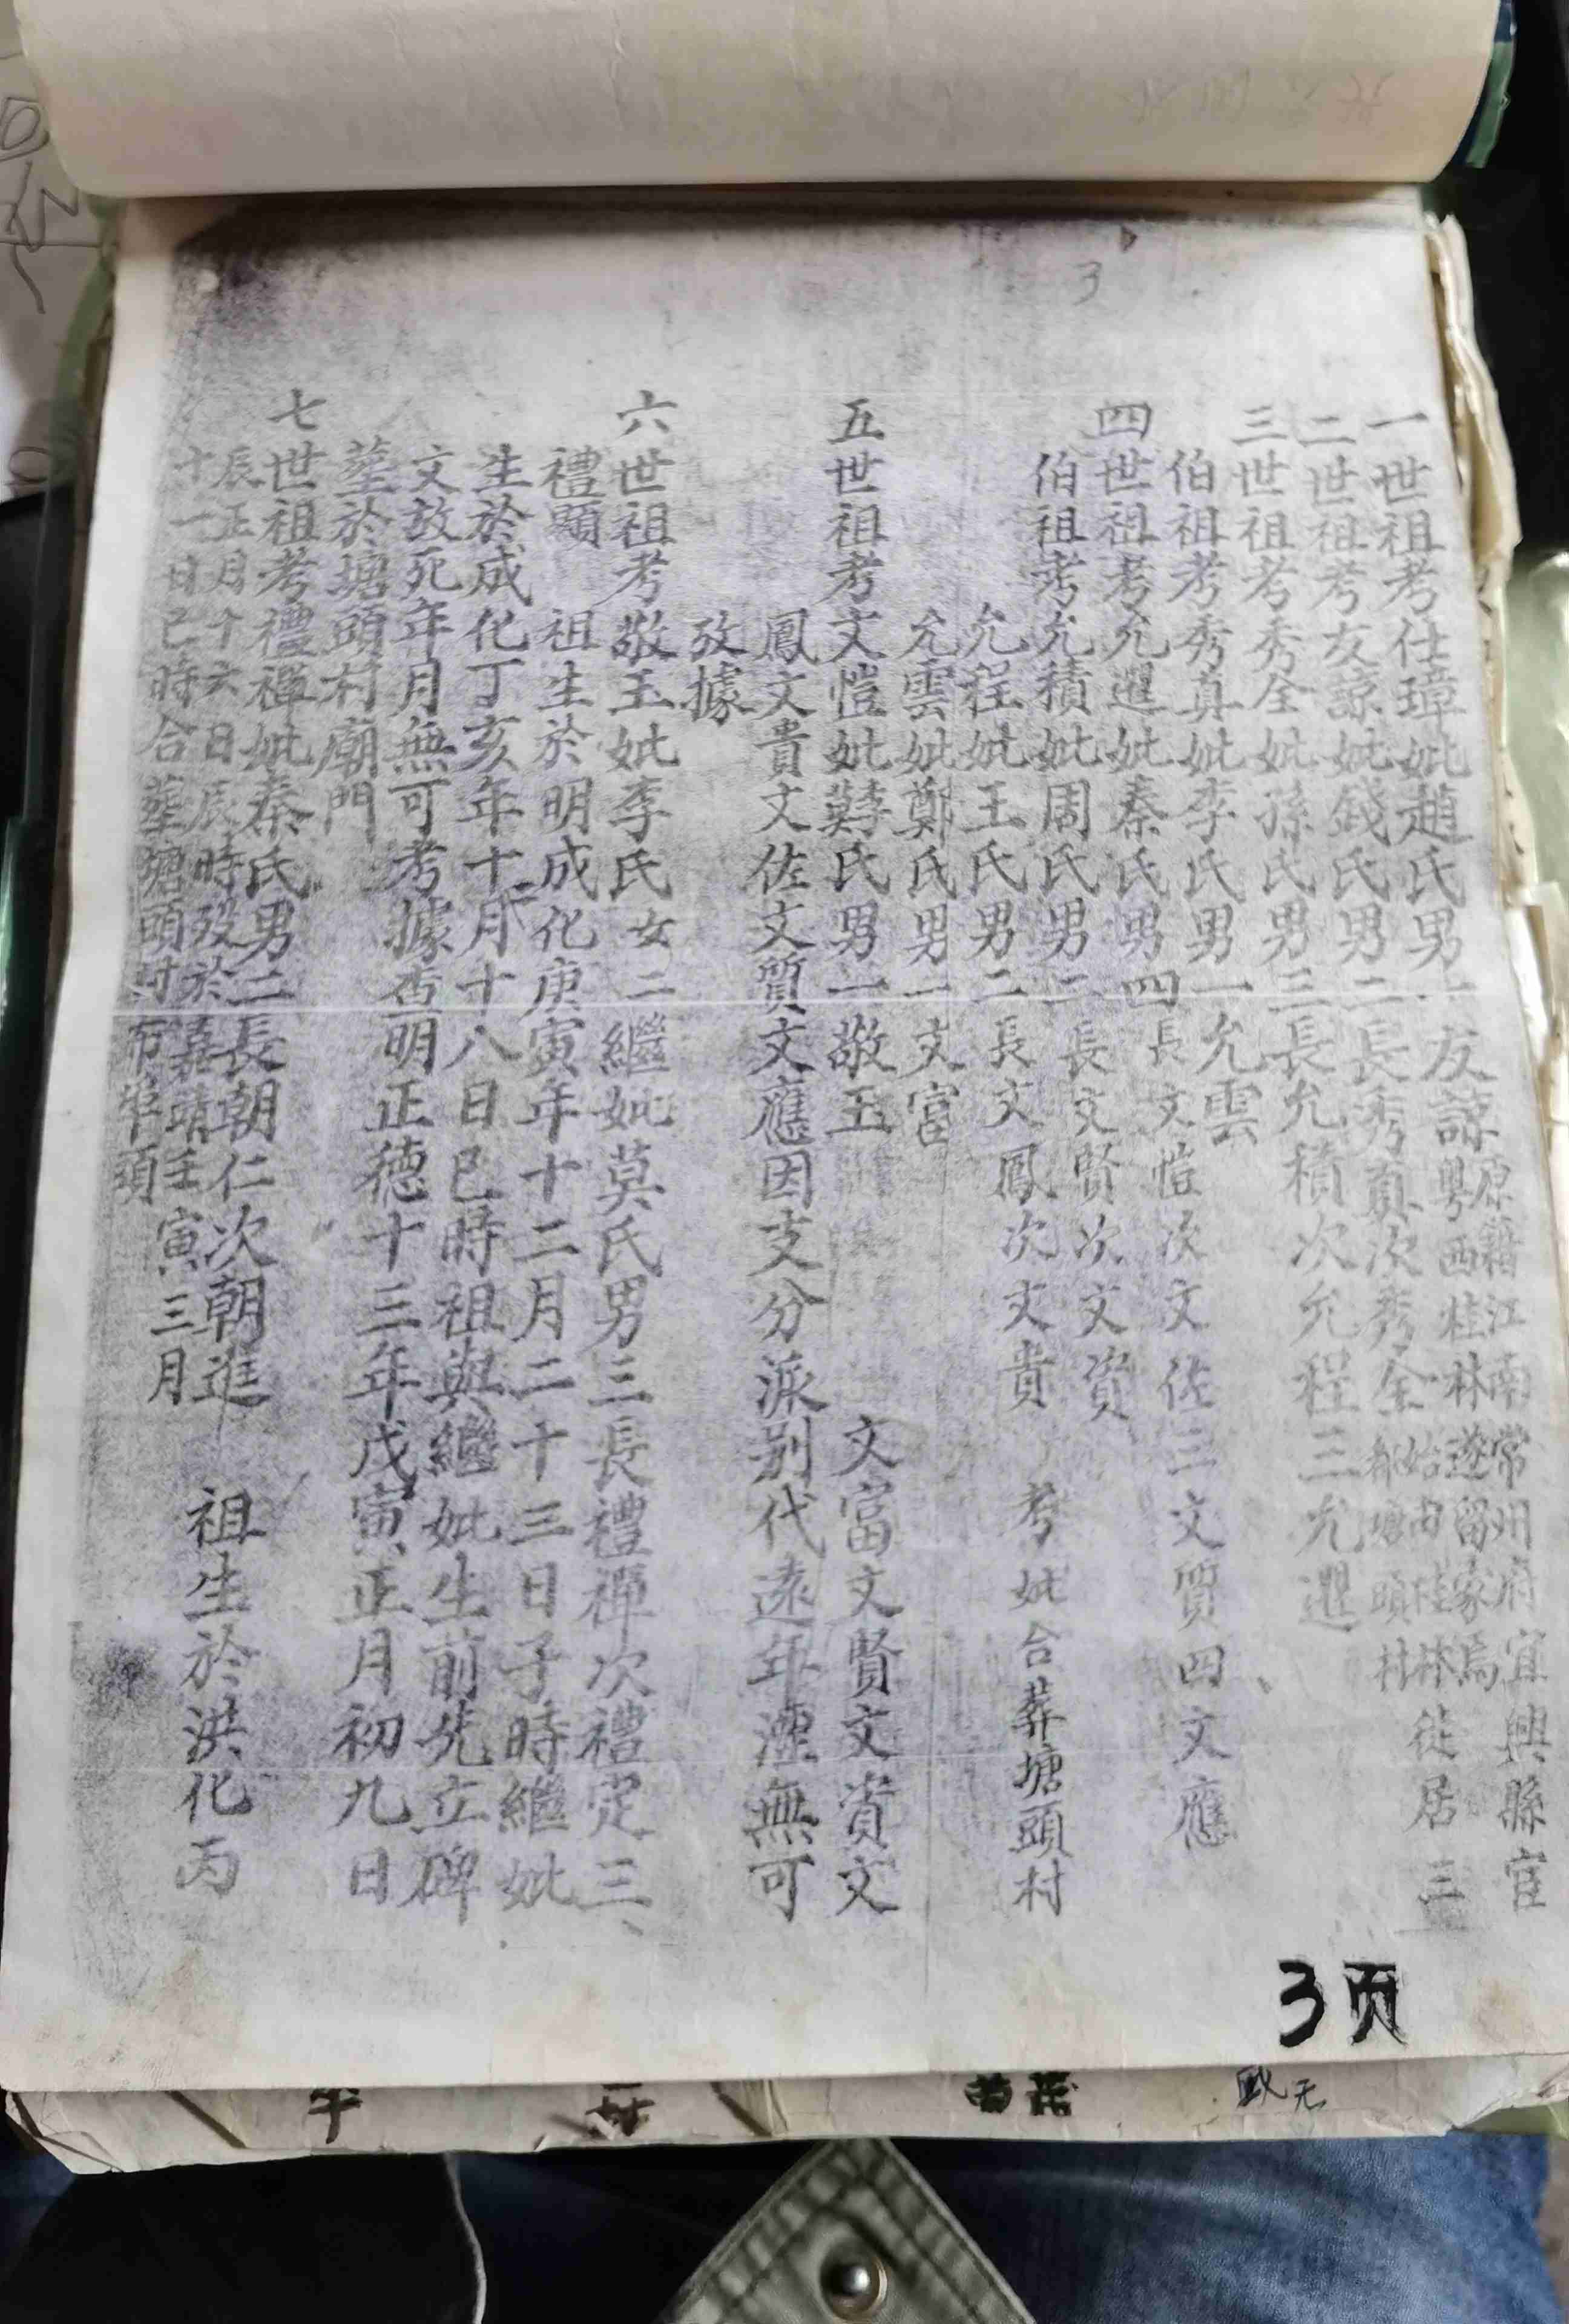 3
一世祖考仕璋妣趙氏男一友諒原籍江南常州府宜興縣宦
粤西桂林遂留家焉
二世祖考友諒妣錢氏男二長秀真次秀全始由桂林徙居三
都塘頭村
三世祖考秀全妣孫氏男三長允積次允程三允選
伯祖考秀真妣李氏男一允雲
四世祖考允選妣秦氏男四長文愷次文佐三文質四文應
伯祖考允積妣周氏男二長文賢次文資
允程妣王氏男二長文鳳次文貴 考妣合葬塘頭村
允雲妣鄭氏男一文富
五世祖考文愷妣氏男一敬玉 文富文賢文資文
鳳文貴文佐文質文應因支分派别代遠年湮無可
攷據
六世祖考敬玉妣李氏女二繼妣莫氏男三長禮禪次禮定三
禮顯 祖生於明成化庚寅年十二月二十三日子時繼妣
生於成化丁亥年十二月十八日巳時祖與繼妣生前先立碑
文故死年月無可考據查明正德十三年戊寅正月初九日
塟於塘頭村廟門
七世祖考禮禪妣秦氏男二長朝仁次朝進 祖生於洪化丙
辰正月十六日辰時殁於嘉靖壬寅三月
十一日巳時合塟塘頭村
3页